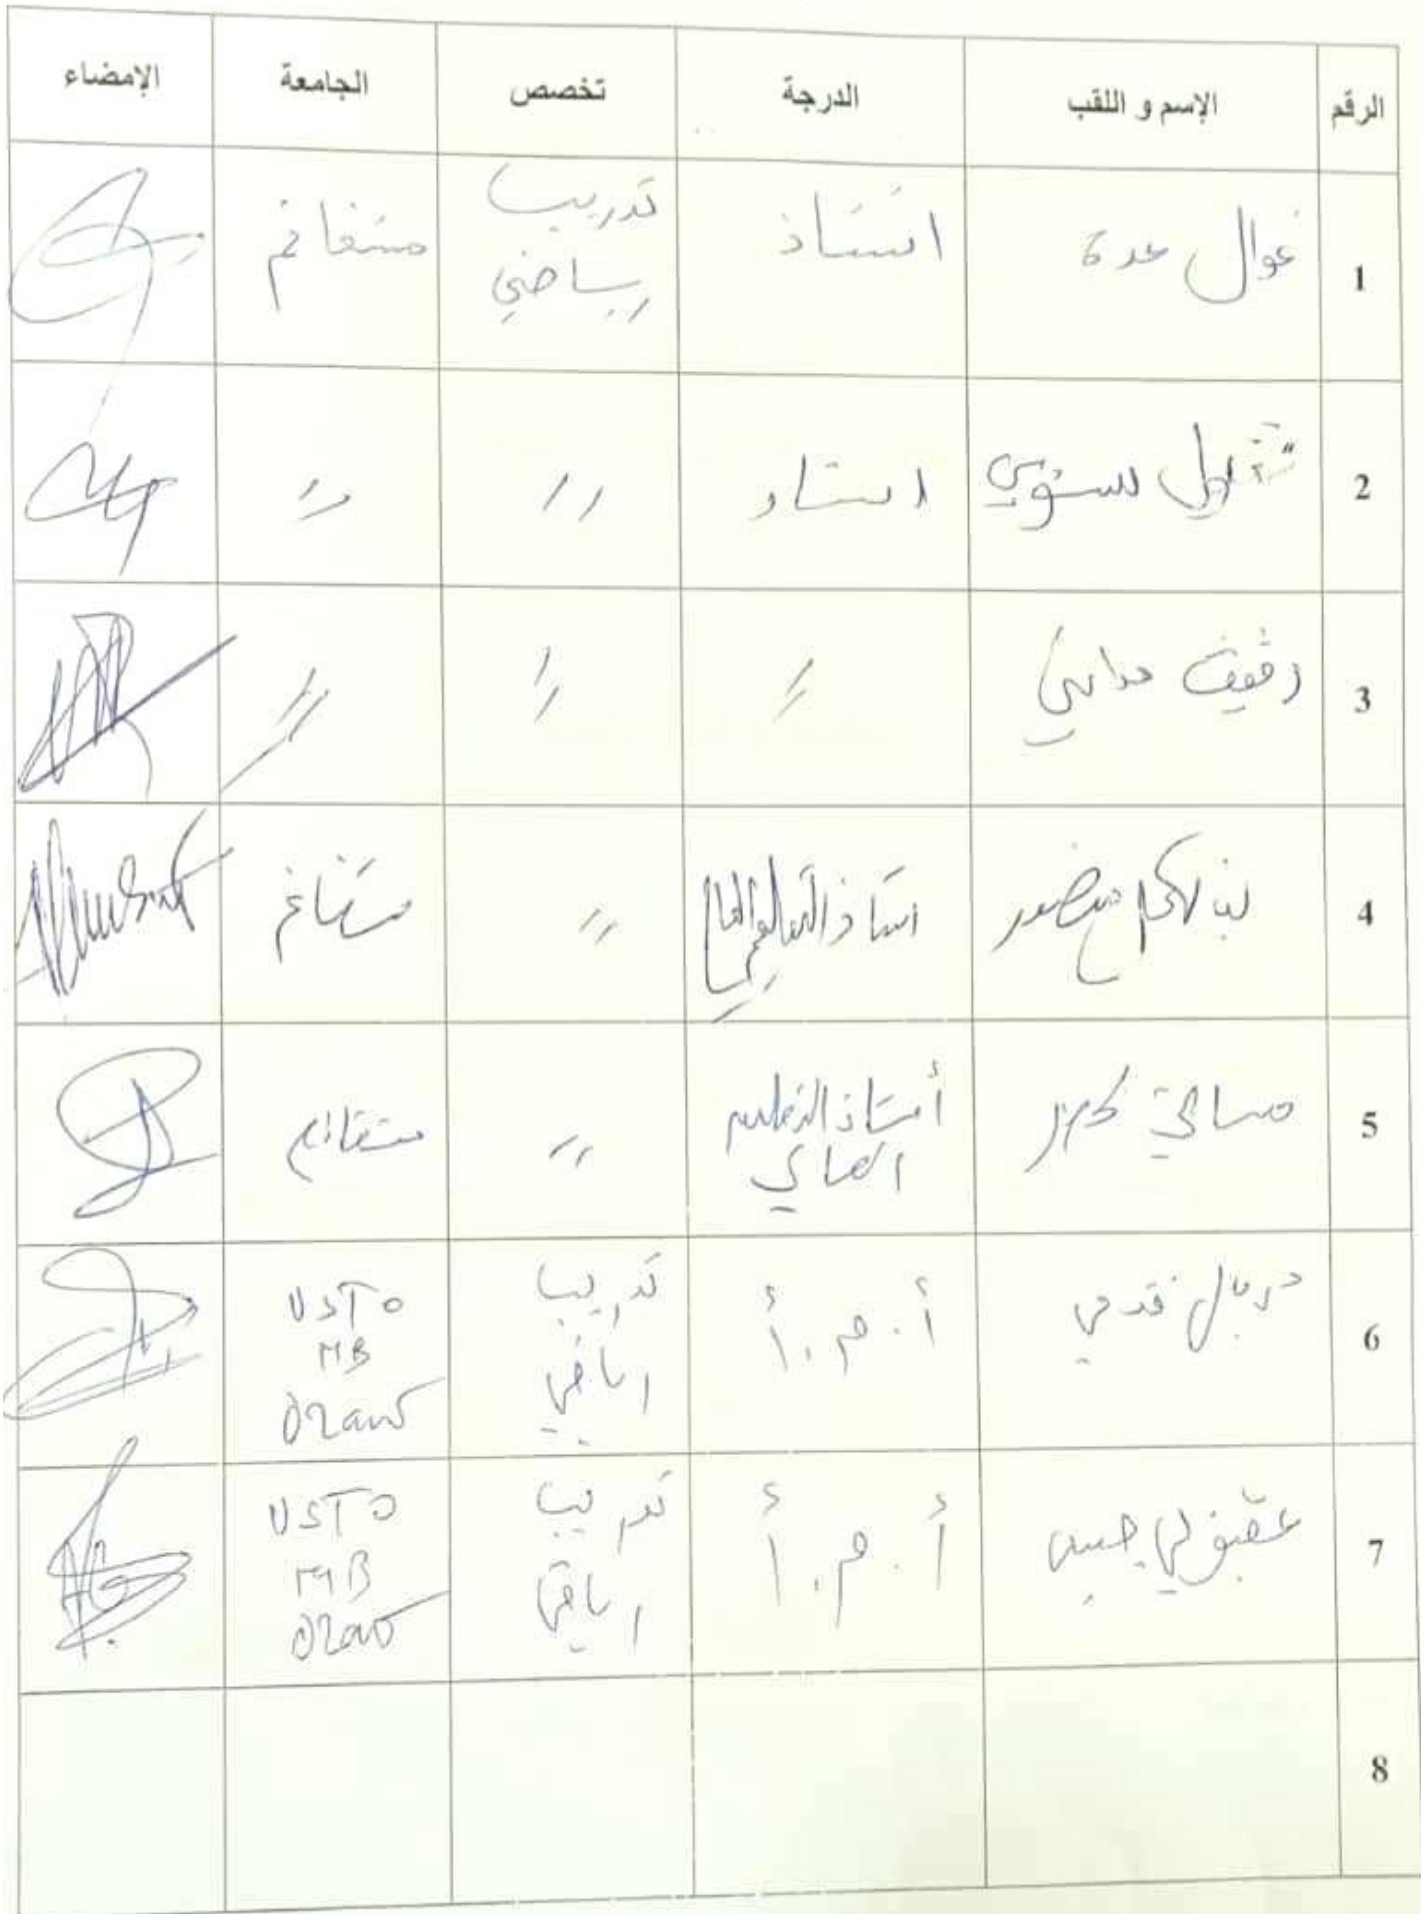 الرقم الإسم و اللقب الدرجة تخصص الجامعة الإمضاء
1 غوال عدة استاذ تدريب رياضي مستغانم
2 استاذ // //
3 // // //
4 منصور استاذ التعليم العالي // مستغانم
5 أستاذ التعليم العالي // مستغانم
6 أ. م. أ تدريب رياضي USTO MB Oran
7 أ. م. أ تدريب رياضي USTO MB Oran
8